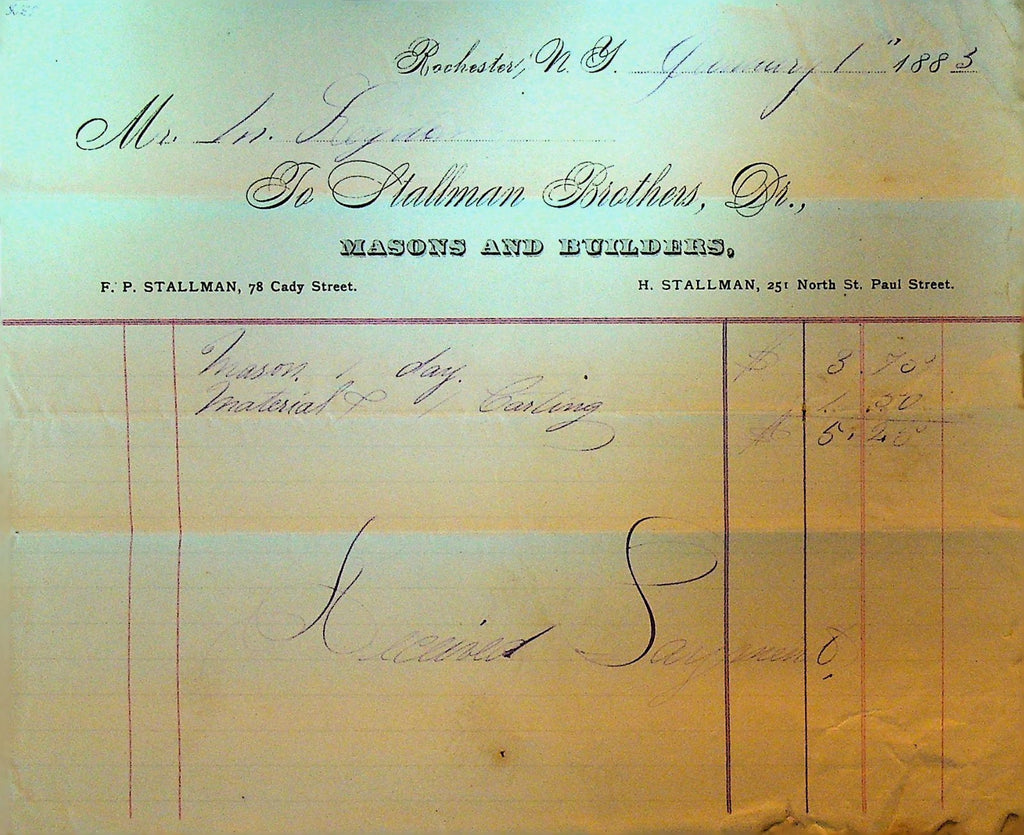 Rochester, N. Y. January 1" 1883
Mr.
To Stallman Brothers, Dr.,
MASONS AND BUILDERS,
F. P. STALLMAN, 78 Cady Street. H. STALLMAN, 251 North St. Paul Street.
Mason 1 day. $ 3.70
Material & 1 Carting 1.50
$ 5.20
Received Payment.